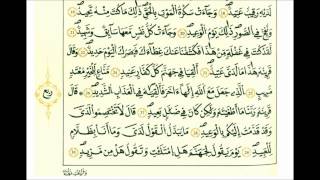 لَدَيْهِ رَقِيبٌ عَتِيدٌ ١٨ وَجَآءَتْ سَكْرَةُ ٱلْمَوْتِ بِٱلْحَقِّ ذَٰلِكَ مَا كُنتَ مِنْهُ تَحِيدُ ١٩
وَنُفِخَ فِي ٱلصُّورِ ذَٰلِكَ يَوْمُ ٱلْوَعِيدِ ٢٠ وَجَآءَتْ كُلُّ نَفْسٍ مَّعَهَا سَآئِقٌ وَشَهِيدٌ ٢١
لَّقَدْ كُنتَ فِي غَفْلَةٍ مِّنْ هَٰذَا فَكَشَفْنَا عَنكَ غِطَآءَكَ فَبَصَرُكَ ٱلْيَوْمَ حَدِيدٌ ٢٢ وَقَالَ
قَرِينُهُۥ هَٰذَا مَا لَدَيَّ عَتِيدٌ ٢٣ أَلْقِيَا فِي جَهَنَّمَ كُلَّ كَفَّارٍ عَنِيدٍ ٢٤ مَّنَّاعٍ لِّلْخَيْرِ مُعْتَدٍ
مُّرِيبٍ ٢٥ ٱلَّذِي جَعَلَ مَعَ ٱللَّهِ إِلَٰهًا ءَاخَرَ فَأَلْقِيَاهُ فِي ٱلْعَذَابِ ٱلشَّدِيدِ ٢٦ قَالَ
قَرِينُهُۥ رَبَّنَا مَآ أَطْغَيْتُهُۥ وَلَٰكِن كَانَ فِي ضَلَٰلٍۭ بَعِيدٍ ٢٧ قَالَ لَا تَخْتَصِمُوا۟ لَدَيَّ
وَقَدْ قَدَّمْتُ إِلَيْكُم بِٱلْوَعِيدِ ٢٨ مَا يُبَدَّلُ ٱلْقَوْلُ لَدَيَّ وَمَآ أَنَا۠ بِظَلَّٰمٍ
لِّلْعَبِيدِ ٢٩ يَوْمَ نَقُولُ لِجَهَنَّمَ هَلِ ٱمْتَلَأْتِ وَتَقُولُ هَلْ مِن مَّزِيدٍ ٣٠
ربع